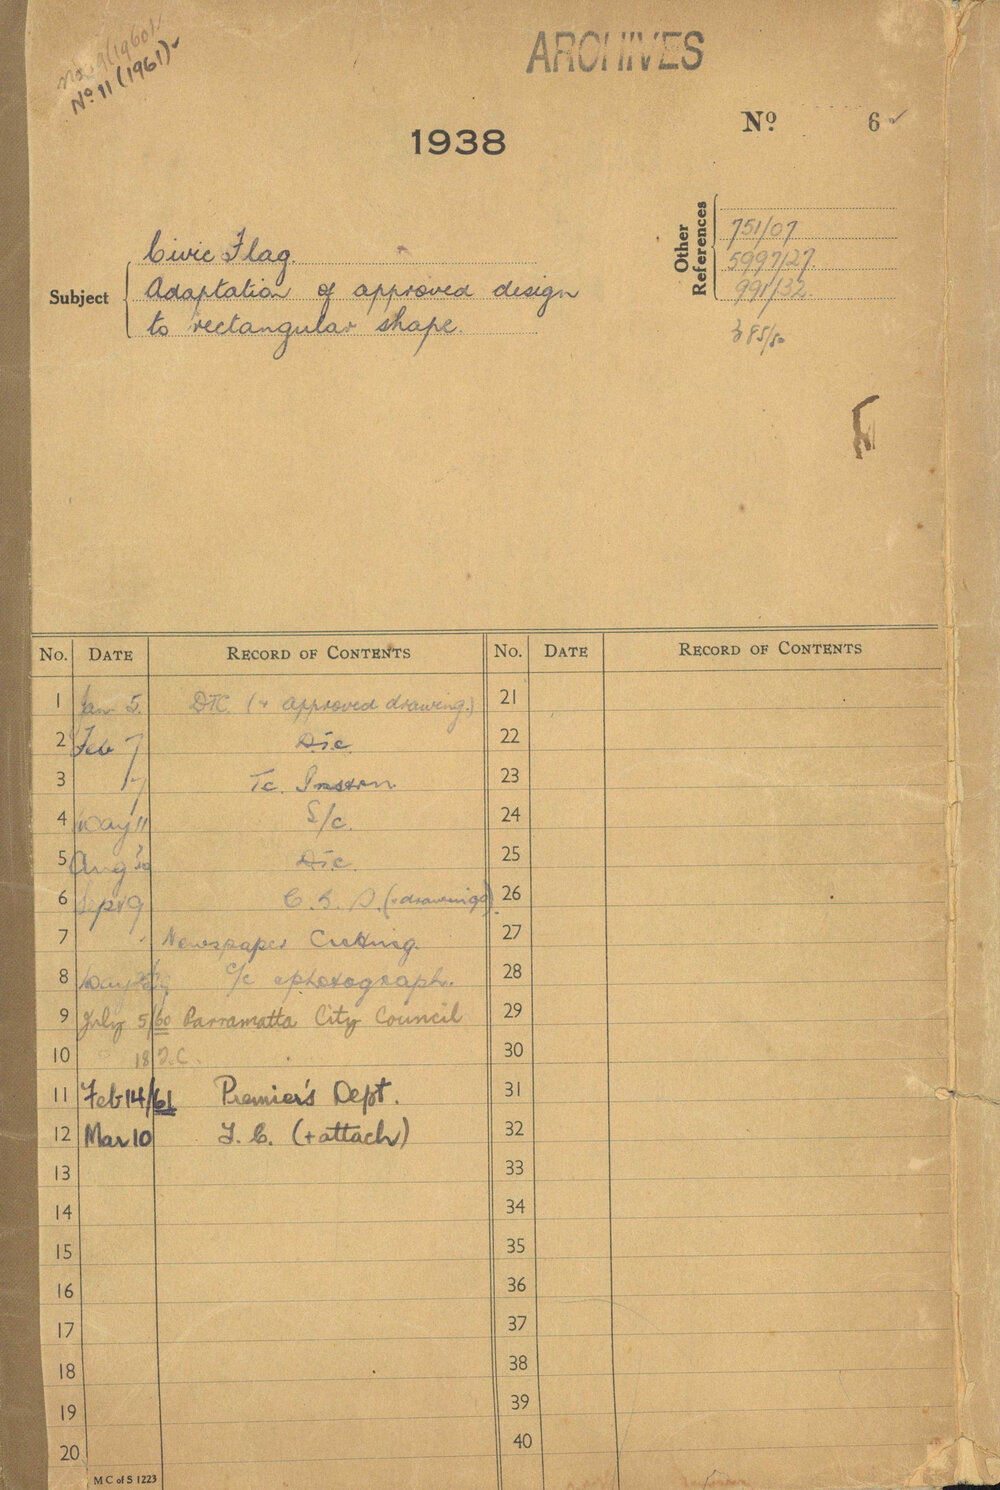 No 9 (1960)
No 11 (1961)
ARCHIVES
No 6
1938
Other References
751/07
5997/27
991/32
385/50
Subject
Civic Flag.
Adaptation of approved design
to rectangular shape.
No. DATE RECORD OF CONTENTS No. DATE RECORD OF CONTENTS
1 Jan 5. (+ approved drawing.) 21
2 Feb 7 22
3 " 7 Tc. 23
4 May 11 S/c. 24
5 Aug 25
6 Sept 9 (+drawings). 26
7 Newspaper Cutting. 27
8 May c/c photograph. 28
9 July 5/60 Parramatta City Council 29
10 18 T.C. 30
11 Feb 14/61 Premier's Dept. 31
12 Mar 10 T.C. (+attach) 32
13 33
14 34
15 35
16 36
17 37
18 38
19 39
20 40
M C of S 1223